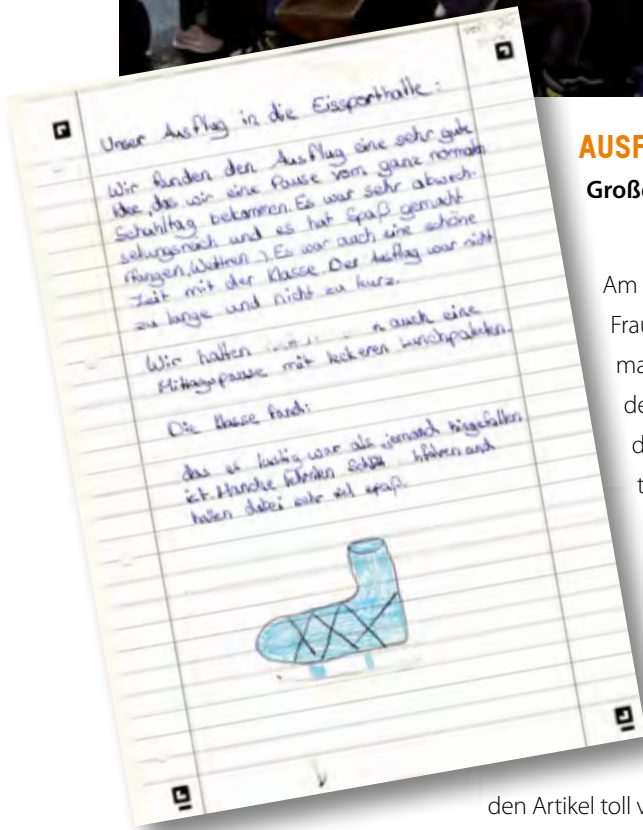 Unser Ausflug in die Eissporthalle:
Wir fanden den Ausflug eine sehr gute
Idee, das wir eine Pause vom ganz normalen
Schultag bekammen. Es war sehr abwech-
selungsreich und es hat Spaß gemacht
Es war auch eine schöne
Zeit mit der Klasse. Der Ausflug war nicht
zu lange und nicht zu kurz.
Wir hatten auch eine
Mittagspause mit leckeren Lunchpaketen.
Die Klasse fand:
das es lustig war als jemand hingefallen
ist. Manche
haten dabei sehr viel spaß.
AUSF
Große
Am
Frau
ma
de
d
t
den Artikel toll v